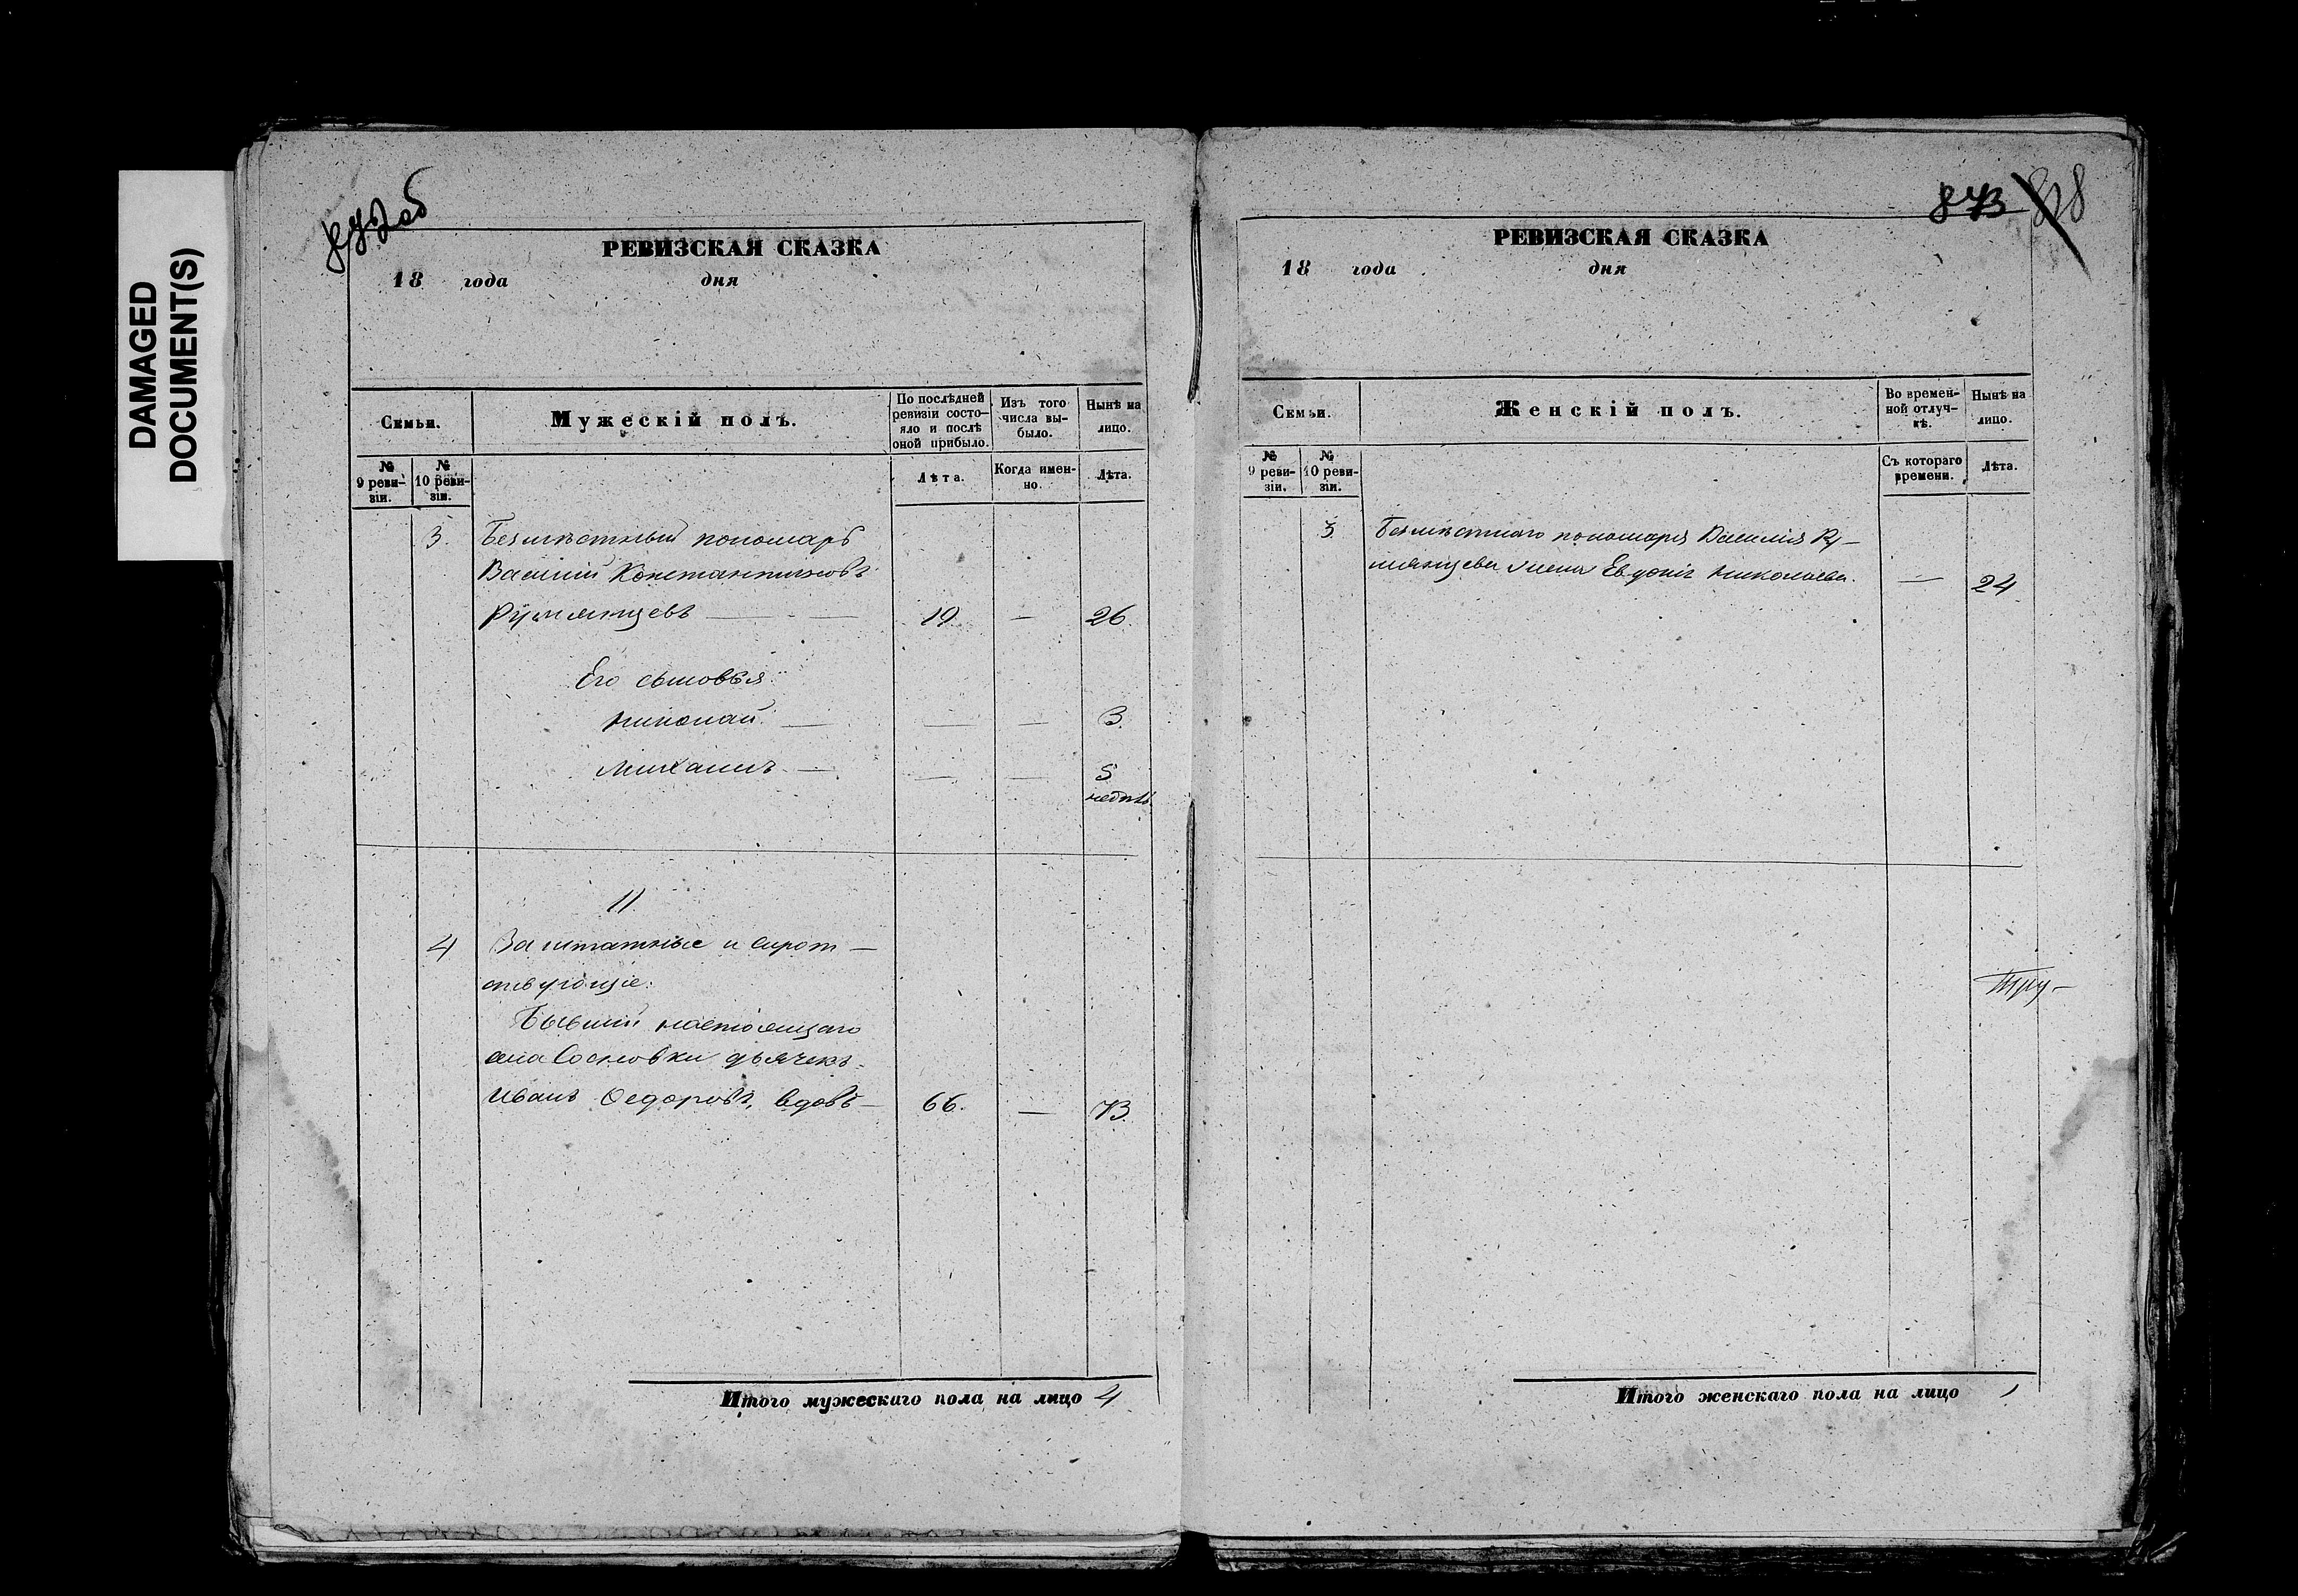 DAMAGED
DOCUMENT(S)
872об
РЕВИЗСКАЯ СКАЗКА
18 года дня
Семьи.
Мужескій полъ.
По послѣдней
ревизіи состо-
яло и послѣ
оной прибыло.
Изъ того
числа вы-
было.
Нынѣ на
лицо.
№
9 реви-
зіи.
№
10 реви-
зіи.
Лѣта.
Когда имен-
но.
Лѣта.
3. Безмѣстный пономарь
Василій Константиновъ
Румянцевъ — 19. — 26.
Его сыновья:
Николай. — — — 3.
Михаилъ — — — 5
недѣль
II.
4 Заштатные и сирот-
ствующіе:
Бывшій настоящаго
села Сосновки дьячекъ
Иванъ Ѳедоровъ, вдовъ — 66. — 73.
Итого мужескаго пола на лицо 4
873 818
РЕВИЗСКАЯ СКАЗКА
18 года дня
Семьи.
Женскій полъ.
Во времен-
ной отлуч-
кѣ.
Нынѣ на
лицо.
№
9 реви-
зіи.
№
10 реви-
зіи.
Съ котораго
времени.
Лѣта.
3. Безмѣстнаго пономаря Василія Ру-
мянцева жена Евдокія Николаева. — 24
Итого женскаго пола на лицо 1